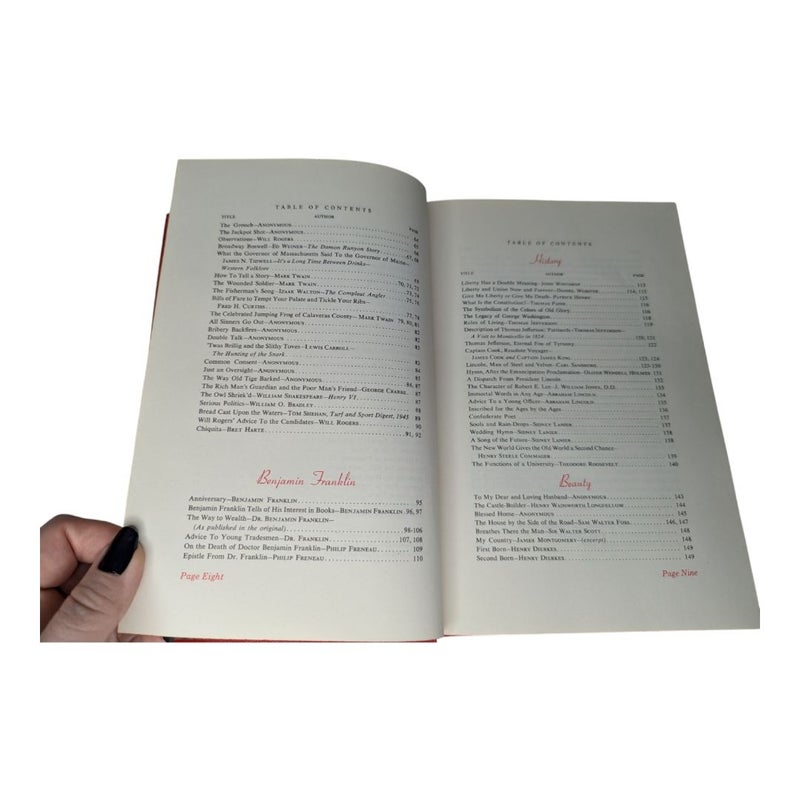 TABLE OF CONTENTS
TITLE AUTHOR PAGE
The Grouch—ANONYMOUS
The Jackpot Shot—ANONYMOUS 64
Observations—WILL ROGERS 65
Broadway Boswell—ED WEINER—The Damon Runyon Story 66
What the Governor of Massachusetts Said To the Governor of Maine— 67, 68
JAMES N. TIDWELL—It's a Long Time Between Drinks—
Western Folklore
How To Tell a Story—MARK TWAIN
The Wounded Soldier—MARK TWAIN 70, 71, 72
The Fisherman's Song—IZAAK WALTON—The Compleat Angler 73, 74
Bills of Fare to Tempt Your Palate and Tickle Your Ribs— 75, 76
FRED H. CURTISS
The Celebrated Jumping Frog of Calaveras County—MARK TWAIN 77, 78
All Sinners Go Out—ANONYMOUS 79, 80, 81
Bribery Backfires—ANONYMOUS 82
Double Talk—ANONYMOUS 82
'Twas Brilig and the Slithy Toves—LEWIS CARROLL—
The Hunting of the Snark
Common Consent—ANONYMOUS 85
Just an Oversight—ANONYMOUS
The Way Old Tige Barked—ANONYMOUS
The Rich Man's Guardian and the Poor Man's Friend—GEORGE CRABBE 86, 87
The Owl Shriek'd—WILLIAM SHAKESPEARE—Henry VI 88
Serious Politics—WILLIAM O. BRADLEY 87
Bread Cast Upon the Waters—TOM SHEHAN, Turf and Sport Digest, 1945 88
Will Rogers' Advice To the Candidates—WILL ROGERS 89
Chiquita—BRET HARTE 91, 92
Benjamin Franklin
Anniversary—BENJAMIN FRANKLIN 95
Benjamin Franklin Tells of His Interest in Books—BENJAMIN FRANKLIN 96, 97
The Way to Wealth—DR. BENJAMIN FRANKLIN—
(As published in the original) 98-106
Advice To Young Tradesmen—DR. FRANKLIN 107, 108
On the Death of Doctor Benjamin Franklin—PHILIP FRENEAU 109
Epistle From Dr. Franklin—PHILIP FRENEAU 110
Page Eight
TABLE OF CONTENTS
History
TITLE AUTHOR PAGE
Liberty Has a Double Meaning—JOHN WINTHROP 113
Liberty and Union Now and Forever—DANIEL WEBSTER 114, 115
Give Me Liberty or Give Me Death—PATRICK HENRY 115
What Is the Constitution?—THOMAS PAINE 116
The Symbolism of the Colors of Old Glory 116
The Legacy of George Washington 118
Rules of Living—THOMAS JEFFERSON 119
Description of Thomas Jefferson, Patriarch—THOMAS JEFFERSON—
A Visit to Monticello in 1824 120, 121
Thomas Jefferson, Eternal Foe of Tyranny 122
Captain Cook, Resolute Voyager—
JAMES COOK AND CAPTAIN JAMES KING 123, 124
Lincoln, Man of Steel and Velvet—CARL SANDBURG 125-130
Hymn, After the Emancipation Proclamation—OLIVER WENDELL HOLMES 131
A Dispatch From President Lincoln 133
The Character of Robert E. Lee—J. WILLIAM JONES, D.D. 132
Immortal Words in Any Age—ABRAHAM LINCOLN 134
Advice To a Young Officer—ABRAHAM LINCOLN 134
Inscribed for the Ages by the Ages 136
Confederate Poet 136
Souls and Rain-Drops—SIDNEY LANIER 138
Wedding Hymn—SIDNEY LANIER 138
A Song of the Future—SIDNEY LANIER 138
The New World Gives the Old World a Second Chance—
HENRY STEELE COMMAGER 139
The Functions of a University—THEODORE ROOSEVELT 140
Beauty
To My Dear and Loving Husband—ANONYMOUS 143
The Castle-Builder—HENRY WADSWORTH LONGFELLOW 144
Blessed Home—ANONYMOUS 145
The House by the Side of the Road—SAM WALTER FOSS 146, 147
Breathes There the Man—SIR WALTER SCOTT 148
My Country—JAMES MONTGOMERY—(excerpt) 148
First Born—HENRY DIERKES 149
Second Born—HENRY DIERKES 149
Page Nine